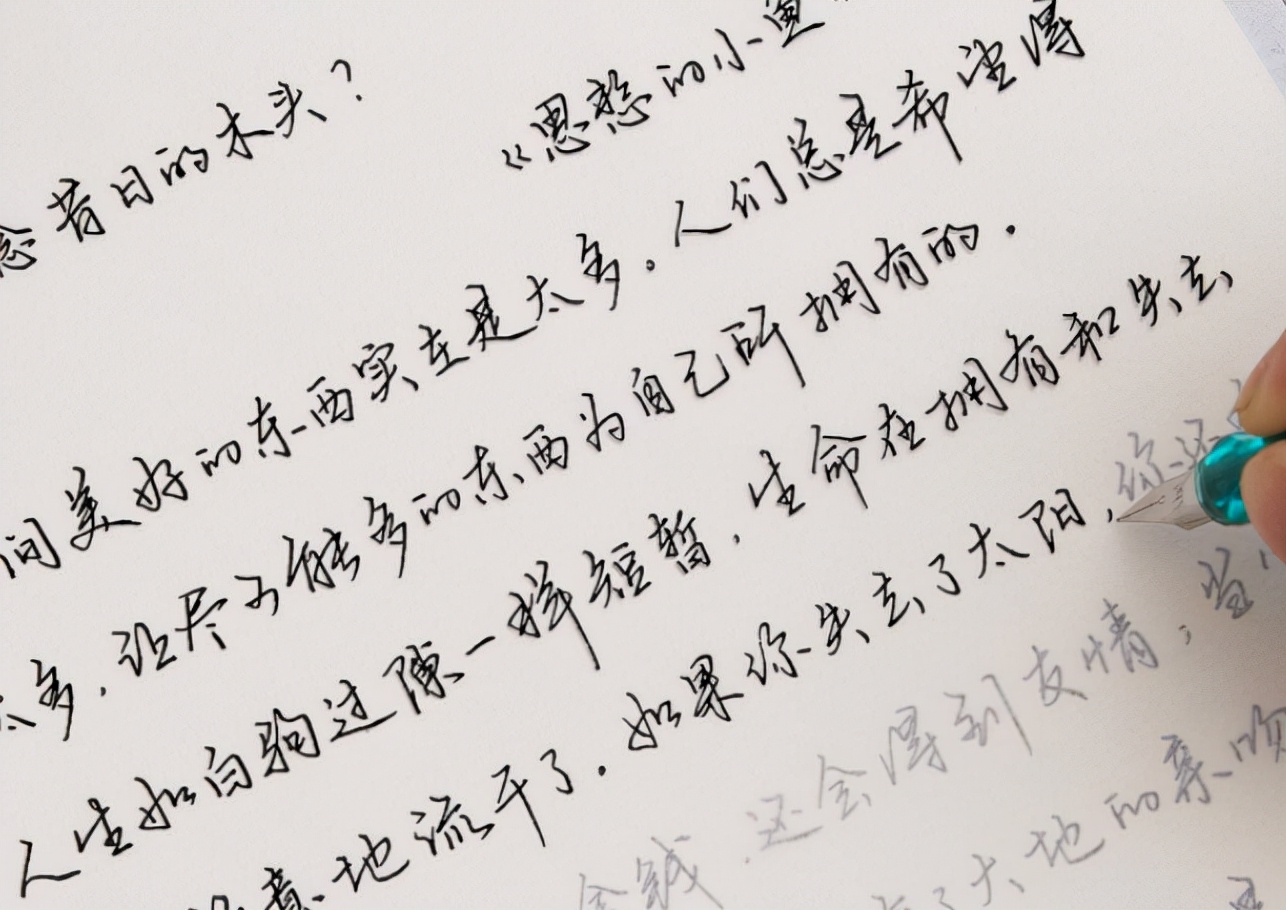 念昔日的木头?
《思愁的小鱼
间美好的东西实在是太多。人们总是希望得
太多,让尽可能多的东西为自己所拥有的.
人生如白驹过隙一样短暂,生命在拥有和失去
意地流干了。如果你失去了太阳,你还
金钱,还会得到友情;当
了大地的亲吻